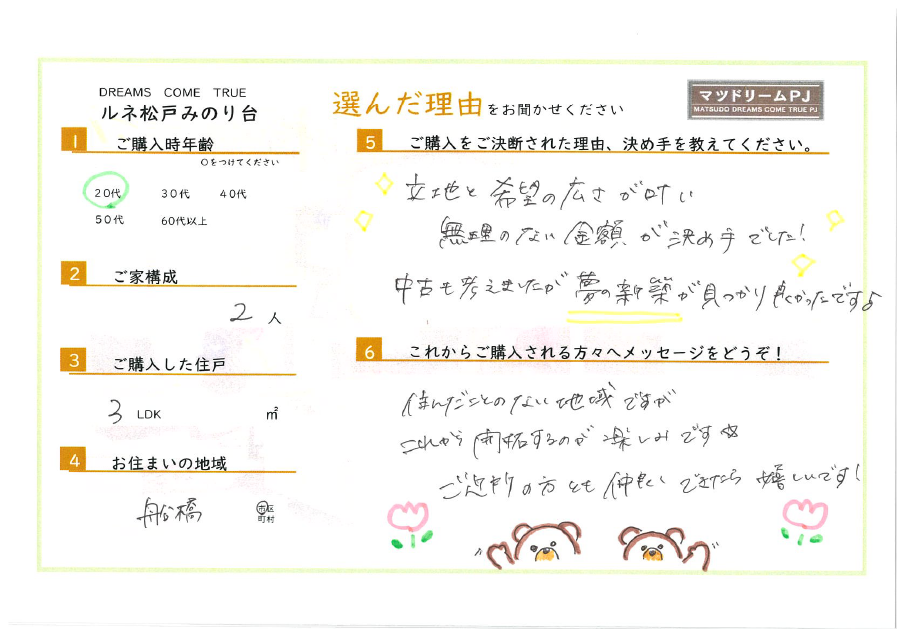 DREAMS COME TRUE
ルネ松戸みのり台
選んだ理由をお聞かせください
マツドリームPJ
MATSUDO DREAMS COME TRUE PJ
1 ご購入時年齢
○をつけてください
20代 30代 40代
50代 60代以上
2 ご家構成
2人
3 ご購入した住戸
3 LDK ㎡
4 お住まいの地域
船橋 市区
町村
5 ご購入をご決断された理由、決め手を教えてください。
立地と希望の広さが叶い
無理のない金額が決め手でした!
中古も考えましたが夢の新築が見つかり良かったです♪
6 これからご購入される方々へメッセージをどうぞ!
住んだことのない地域ですが
これから開拓するのが楽しみです☆
ご近所の方とも仲良くできたら嬉しいです!